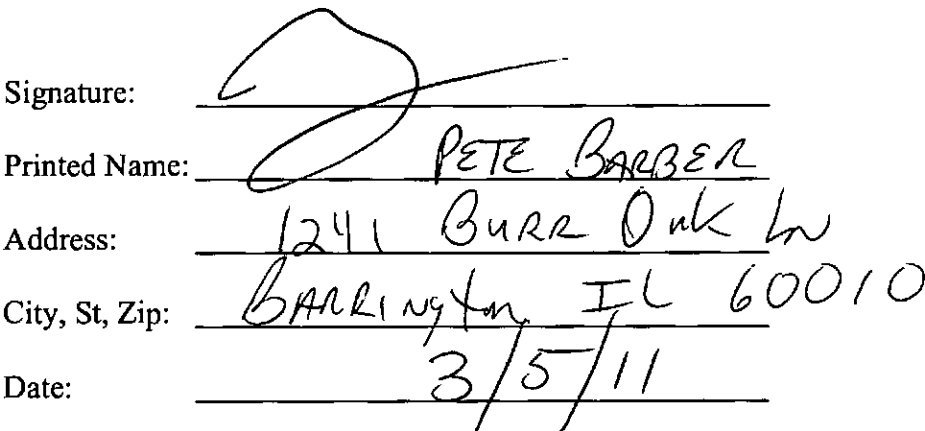 Signature:
Printed Name: PETE BARBER
Address: 1241 BURR OAK LN
City, St, Zip: BARRINGTON, IL 60010
Date: 3/5/11